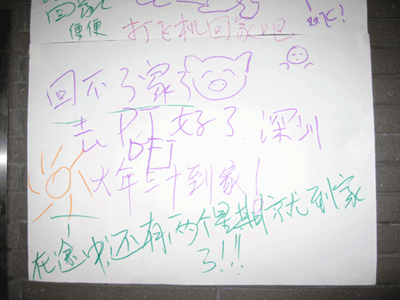 回家
便便
打飞机回家吧
回不了家了
去PT好了.深圳
大年三十到家!
在途中,还有两个星期就到家
了!!!